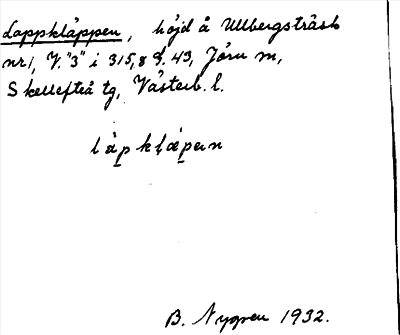 Lappkläppen, höjd å Ullbergsträsk
nr 1, V. "3" i 315,8 f. 43, Jörn sn,
Skellefteå tg, Västerb. l.
B. Nygren 1932.